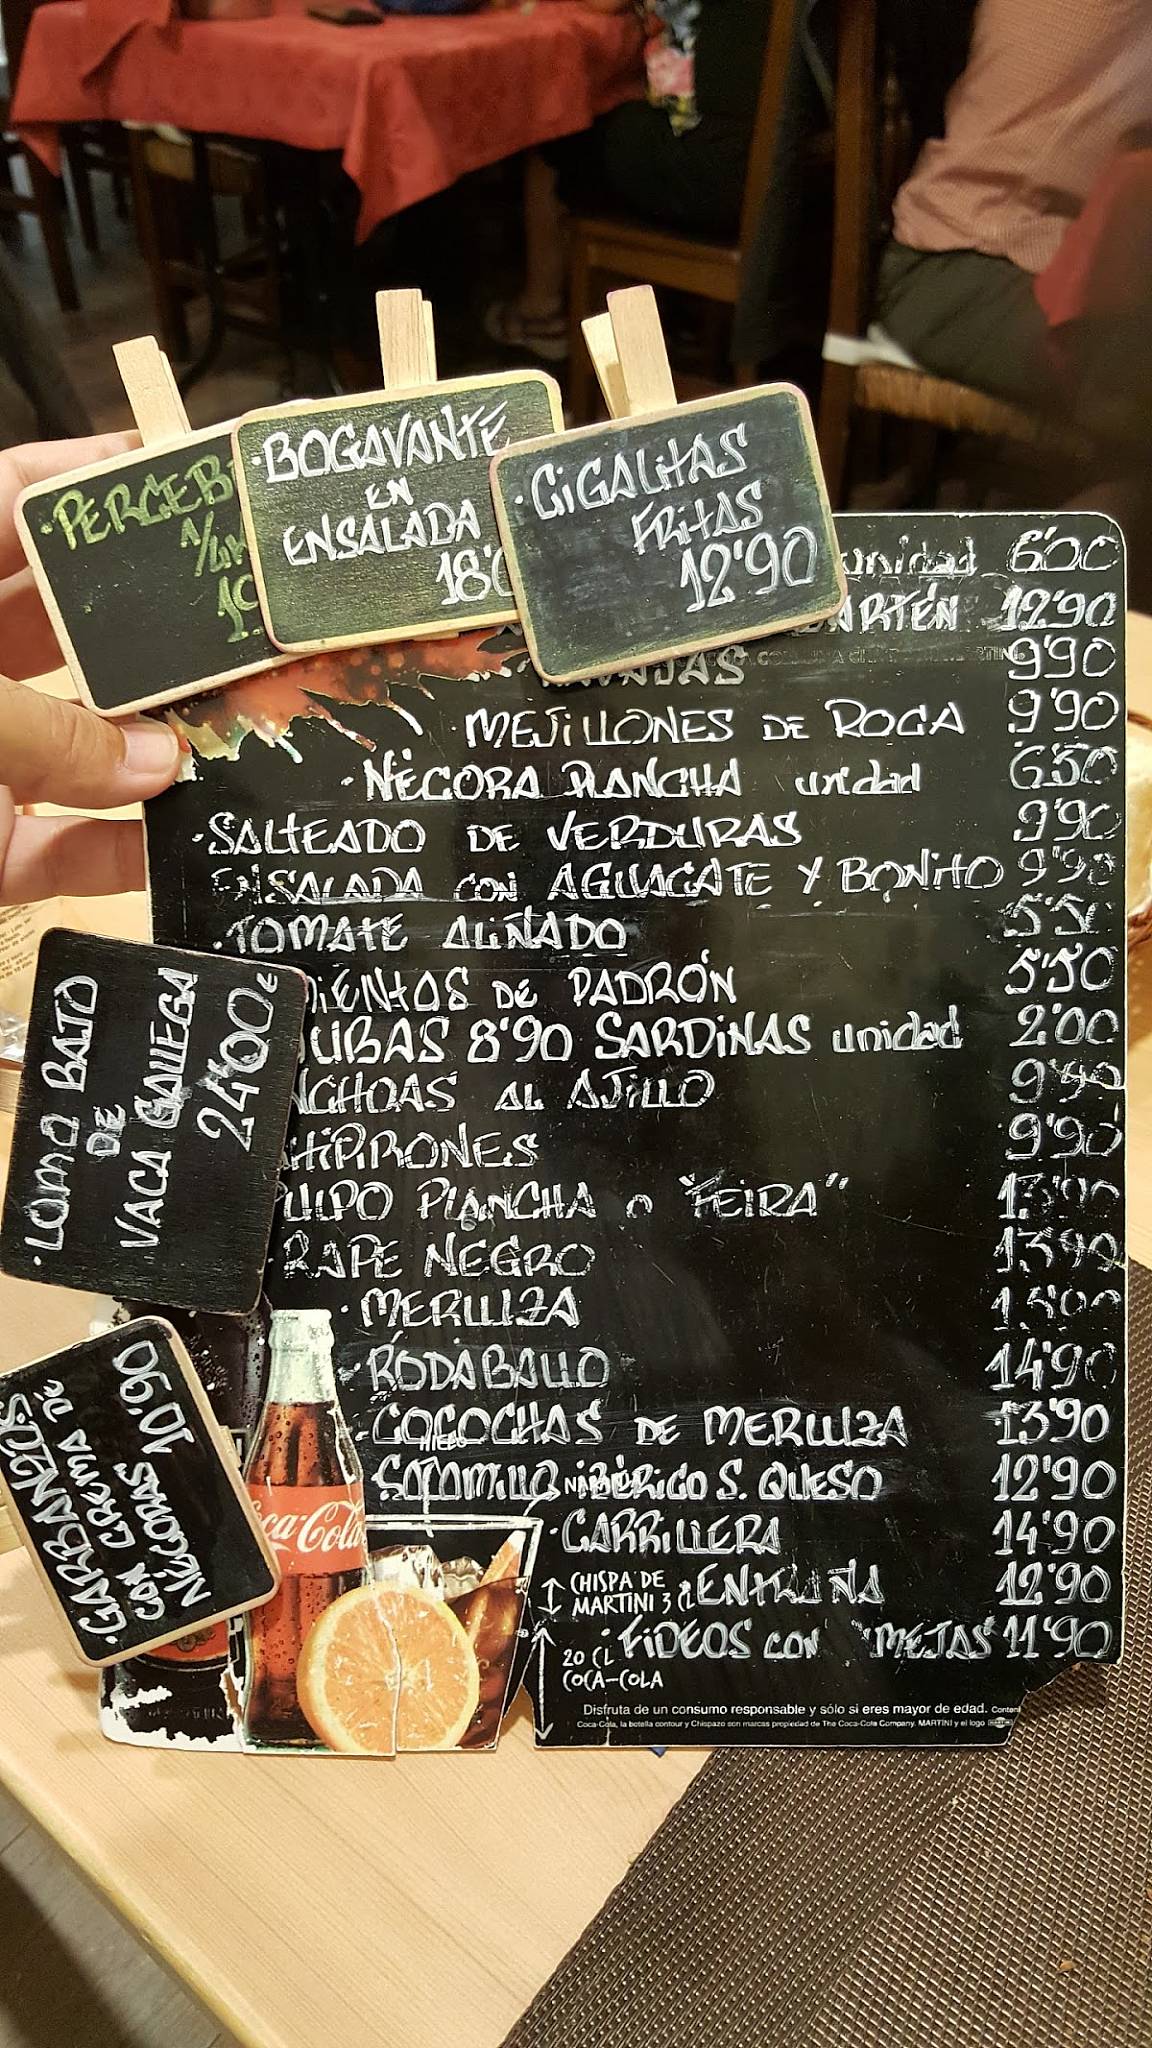 BOGAVANTE
EN
ENSALADA
CIGALITAS
FRITAS
12'90
unidad 6'00
12'90
9'90
MEJILLONES DE ROCA 9'90
·NÉCORA PLANCHA unidad 6'50
·SALTEADO DE VERDURAS 9'90
ENSALADA CON AGUACATE Y BONITO 9'90
·TOMATE ALIÑADO 5'50
DE PADRÓN 5'50
8'90 SARDINAS unidad 2'00
AL AJILLO 9'90
9'90
PLANCHA O "FEIRA"
·RAPE NEGRO 13'90
·MERLUZA
·RODABALLO 14'90
·COCOCHAS DE MERLUZA 13'90
IBÉRICO S. QUESO 12'90
·CARRILLERA 14'90
ENTRAÑA 12'90
·FIDEOS CON "MEJAS" 11'90
·LOMO BAJO
DE
VACA GALLEGA
24'00€
·GARBANZOS
CON CREMA DE
NÉCORAS 10'90
Coca-Cola
HIELO
CHISPA DE
MARTINI 3 CL
20 CL
COCA-COLA
Disfruta de un consumo responsable y sólo si eres mayor de edad.
Coca-Cola, la botella contour y Chispazo son marcas propiedad de The Coca-Cola Company. MARTINI y el logo